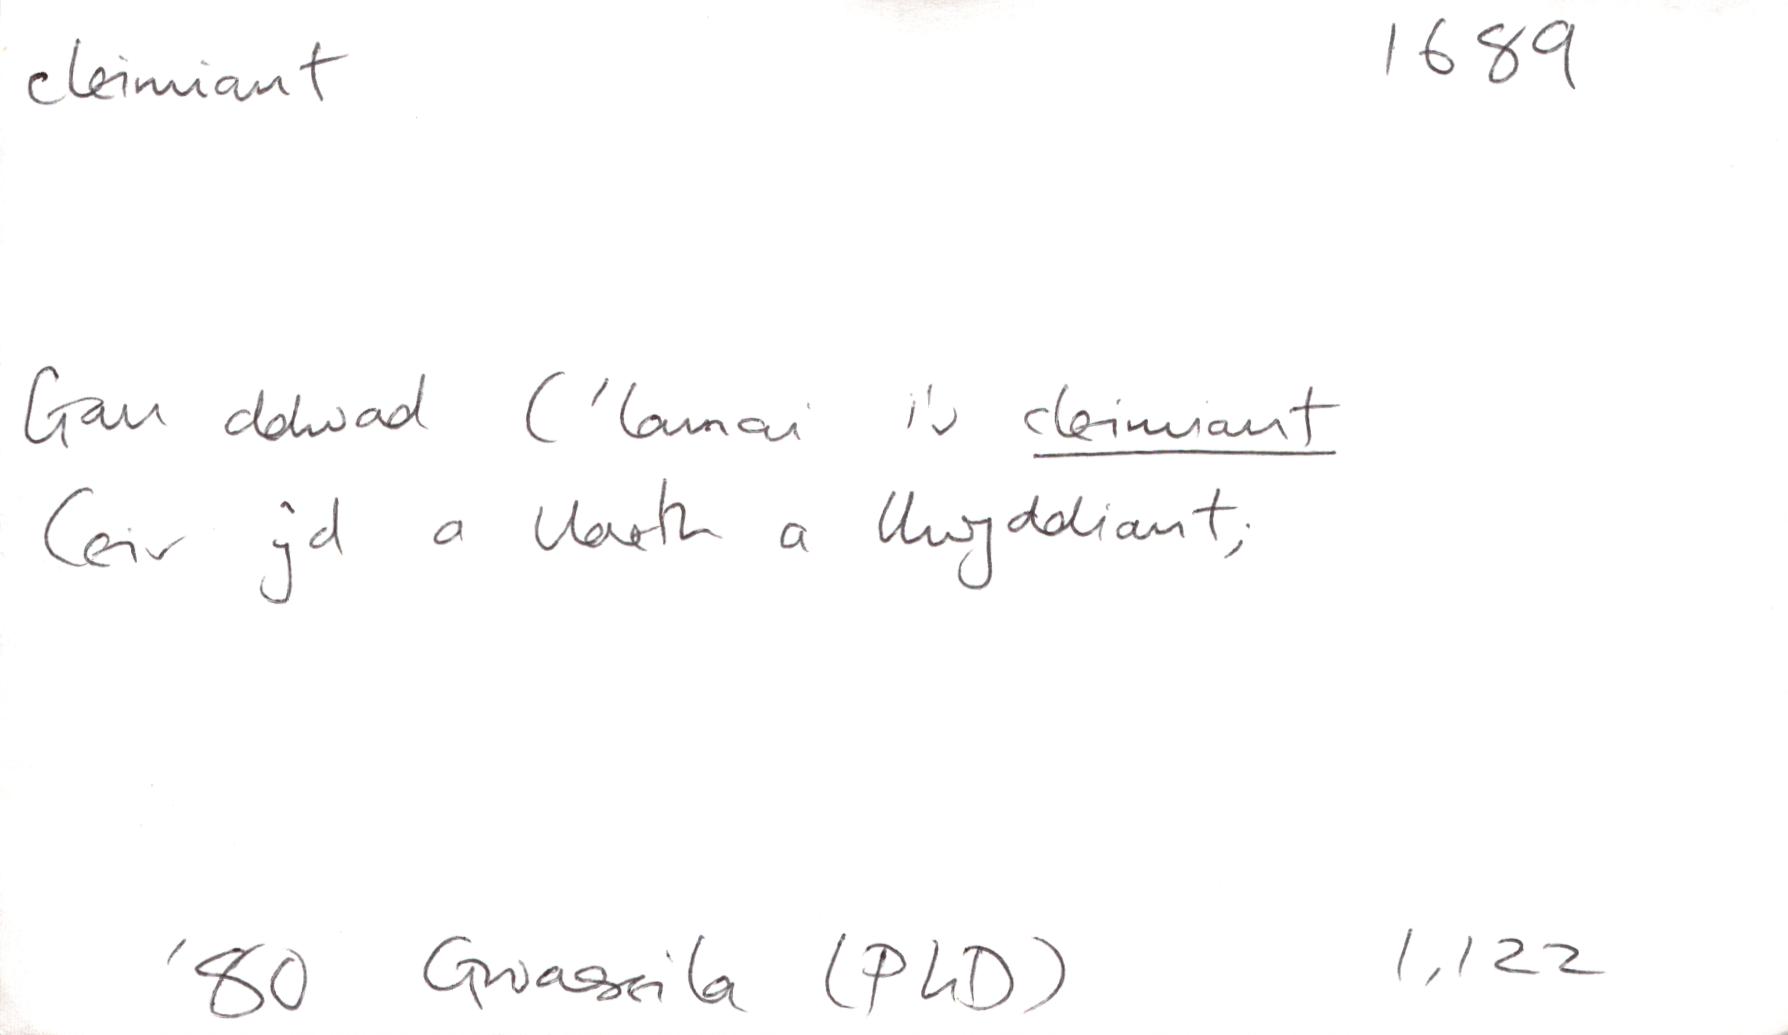 cleimiant 1689
Gan ddwad C'lamai i'r cleimiant
Ceir ŷd a llaeth a llwyddiant;
'80 Gwaseila (PhD) 1,122